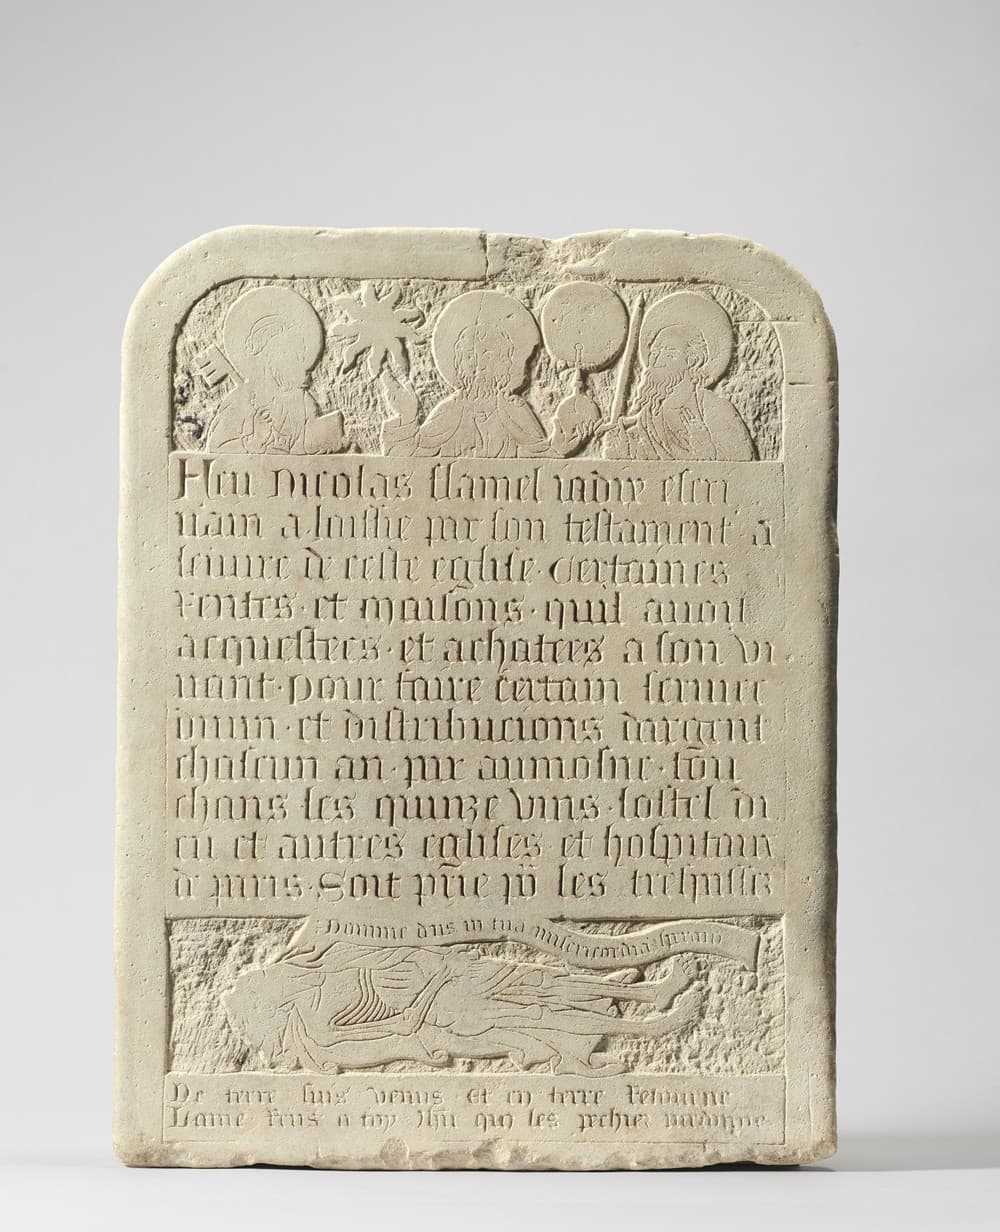 Feu nicolas flamel iadix escri
uain a laissie par son testament a
leuure de ceste eglise · certaines
Rentes · et maisons · quil auoit
acquestees · et achatees a son vi
uant · pour faire certain seruice
diuin · et distribucions dargent
chascun an · par aumosne · tou
chans les quinze vins · lostel di
eu et autres eglises · et hospitaux
de paris · Soit prie por les trespassez
Domine deus in tua misericordia speraui
De terre suis venus et en terre Retourne
Lame Rens a toy Ihu qui les pechiez pardonne